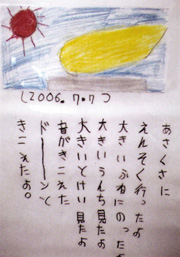 (2006.7.7)
あさくさに
えんそく行ったよ
大きいふねにのったよ
大きいうんち見たよ
大きいとけい見たよ
音がきこえた
ドーーンと
きこえたよ。